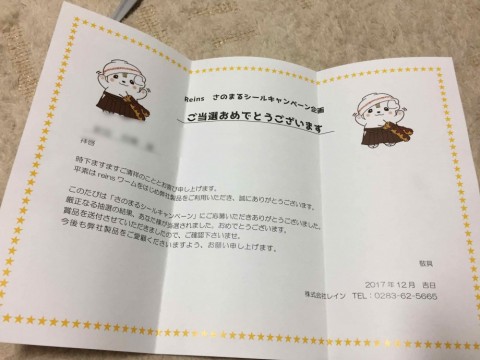 Reins さのまるシールキャンペーン企画
ご当選おめでとうございます
拝啓
時下ますますご清祥のこととお喜び申し上げます。
平素はreinsワームをはじめ弊社製品をご利用いただき、誠にありがとうございます。
このたびは「さのまるシールキャンペーン」にご応募いただきありがとうございました。
厳正なる抽選の結果、あなた様が当選されました。おめでとうございます。
賞品を送付させていただきましたので、ご確認下さいませ。
今後も弊社製品をご愛顧くださいますよう、お願い申し上げます。
敬具
2017年12月 吉日
株式会社レイン TEL：0283-62-5665